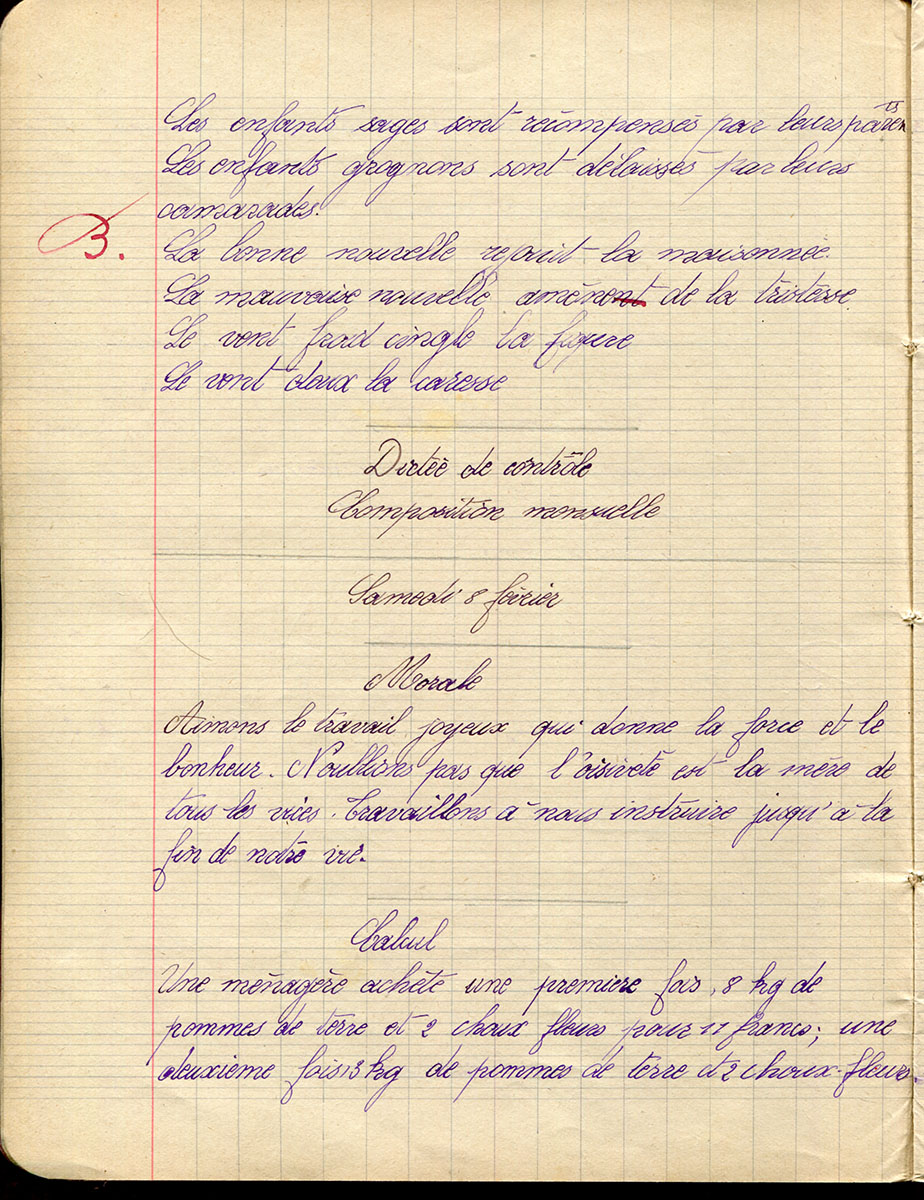 Les enfants sages sont récompensés par leurs parents
Les enfants grognons sont délaissés par leurs
camarades.
B.
La bonne nouvelle rejouit la maisonnée.
La mauvaise nouvelle amènent de la tristesse
Le vent froid cingle la figure
Le vent doux la caresse
Dictée de contrôle
Composition mensuelle
Samedi 8 février
Morale
Aimons le travail joyeux qui donne la force et le
bonheur. N'oublions pas que l'oisiveté est la mère de
tous les vices. Travaillons à nous instruire jusqu'à la
fin de notre vie.
Calcul
Une ménagère achète une première fois, 8 kg de
pommes de terre et 2 choux fleurs pour 11 francs; une
deuxième fois 13 kg de pommes de terre et 2 choux-fleurs